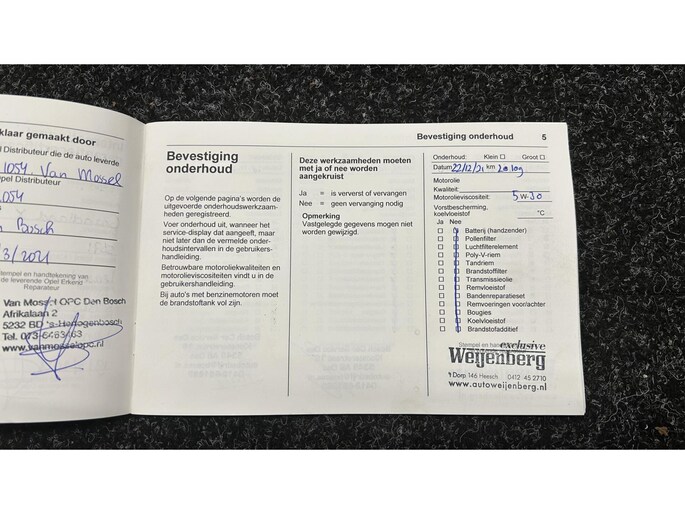 klaar gemaakt door
Distributeur die de auto leverde
1054. Van Mossel
Opel Distributeur
054
Bosch
3/2021
Stempel en handtekening van
de leverende Opel Erkend
Reparateur
Van Mossel OPC Den Bosch
Afrikalaan 2
5232 BD 's-Hertogenbosch
Tel. 073-6483463
www.vanmosselopc.nl
Bevestiging onderhoud 5
Bevestiging
onderhoud
Op de volgende pagina's worden de
uitgevoerde onderhoudswerkzaam-
heden geregistreerd.
Voer onderhoud uit, wanneer het
service-display dat aangeeft, maar
niet later dan de vermelde onder-
houdsintervallen in de gebruikers-
handleiding.
Betrouwbare motoroliekwaliteiten en
motorolieviscositeiten vindt u in de
gebruikershandleiding.
Bij auto's met benzinemotoren moet
de brandstoftank vol zijn.
Deze werkzaamheden moeten
met ja of nee worden
aangekruist
Ja = is ververst of vervangen
Nee = geen vervanging nodig
Opmerking
Vastgelegde gegevens mogen niet
worden gewijzigd.
Onderhoud: Klein Groot
Datum 22/12/21 km
Motorolie
Kwaliteit:
Motorolieviscositeit: 5 W-30
Vorstbescherming,
koelvloeistof °C
Ja Nee
Batterij (handzender)
Pollenfilter
Luchtfilterelement
Poly-V-riem
Tandriem
Brandstoffilter
Transmissieolie
Remvloeistof
Bandenreparatieset
Remvoeringen voor/achter
Bougies
Koelvloeistof
Brandstofadditief
Stempel en exclusive
Weijenberg
't Dorp 146 Heesch 0412 45 2710
www.autoweijenberg.nl